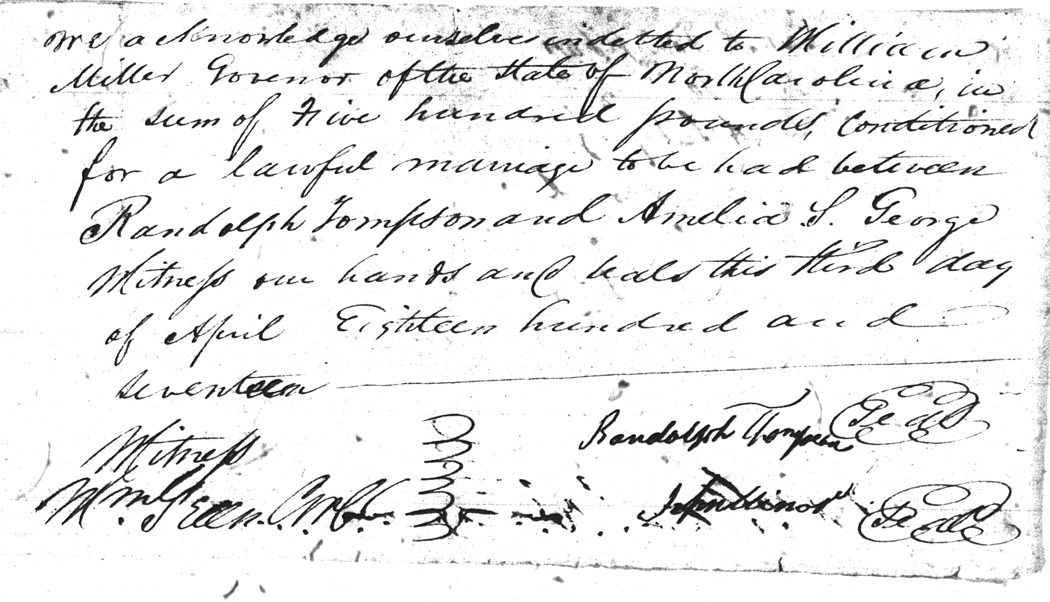 We acknowledge ourselves indetted to William
Miller Govenor of the State of North Carolina, in
the sum of Five hundred pounds, Conditioned
for a lawful marriage to be had between
Randolph Tompson and Amelia S. George
Witness our hands and seals this third day
of April Eighteen hundred and
seventeen
Witness
Randolph Tompson Seal
Wm Green
John Seal